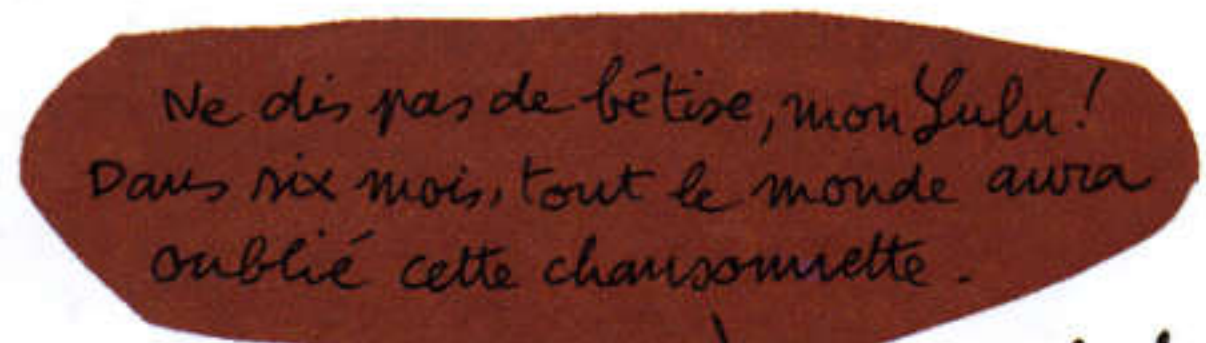 Ne dis pas de bêtise, mon Lulu!
Dans six mois, tout le monde aura
oublié cette chansonnette.